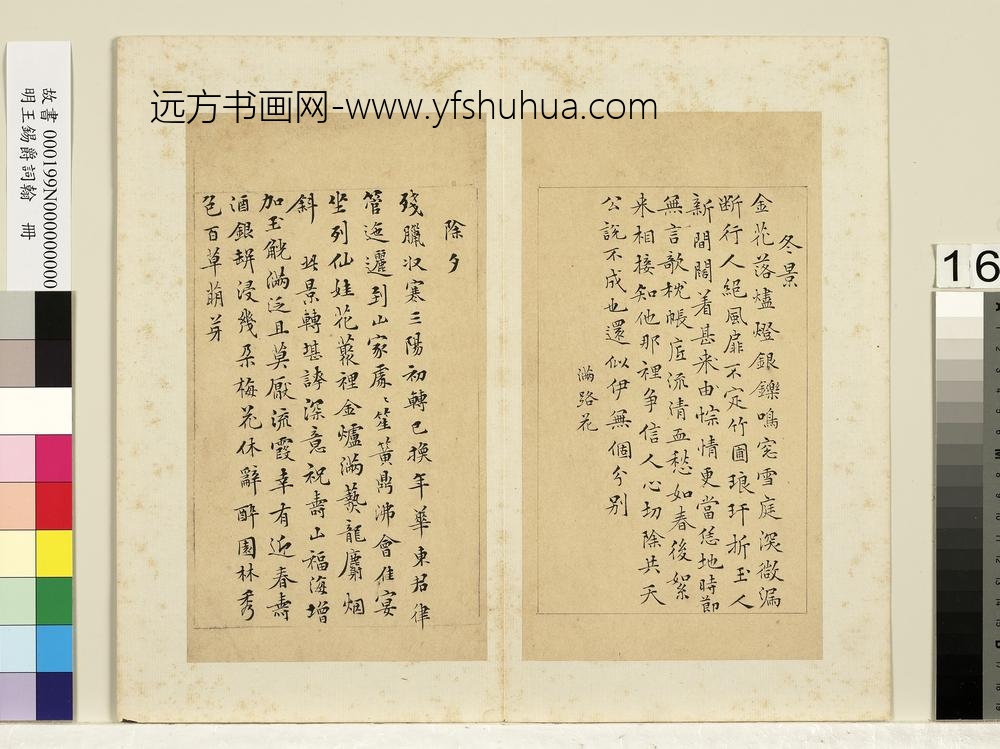 远方书画网-www.yfshuhua.com
故書 000199N000000000
明王錫爵詞翰 冊
16
冬景
金花落燼燈銀鑠鳴窓雪庭深微漏
断行人絕風扉不定竹圃琅玕折玉人
新間闊着甚来由悰情更當恁地時節
無言歌枕帳底流清血愁如春後絮
来相接知他那裡争信人心切除共天
公説不成也還似伊無個分别
滿路花
除夕
殘臘收寒三陽初轉已換年華東君律
管迤邐到山家處〻笙簧鼎沸會佳宴
坐列仙娃花叢裡金爐滿爇龍麝烟
斜 此景轉堪誇深意祝壽山福海增
加玉觥滿泛且莫厭流霞幸有迎春壽
酒銀缾浸幾朶梅花休辭醉園林秀
色百草萌芽